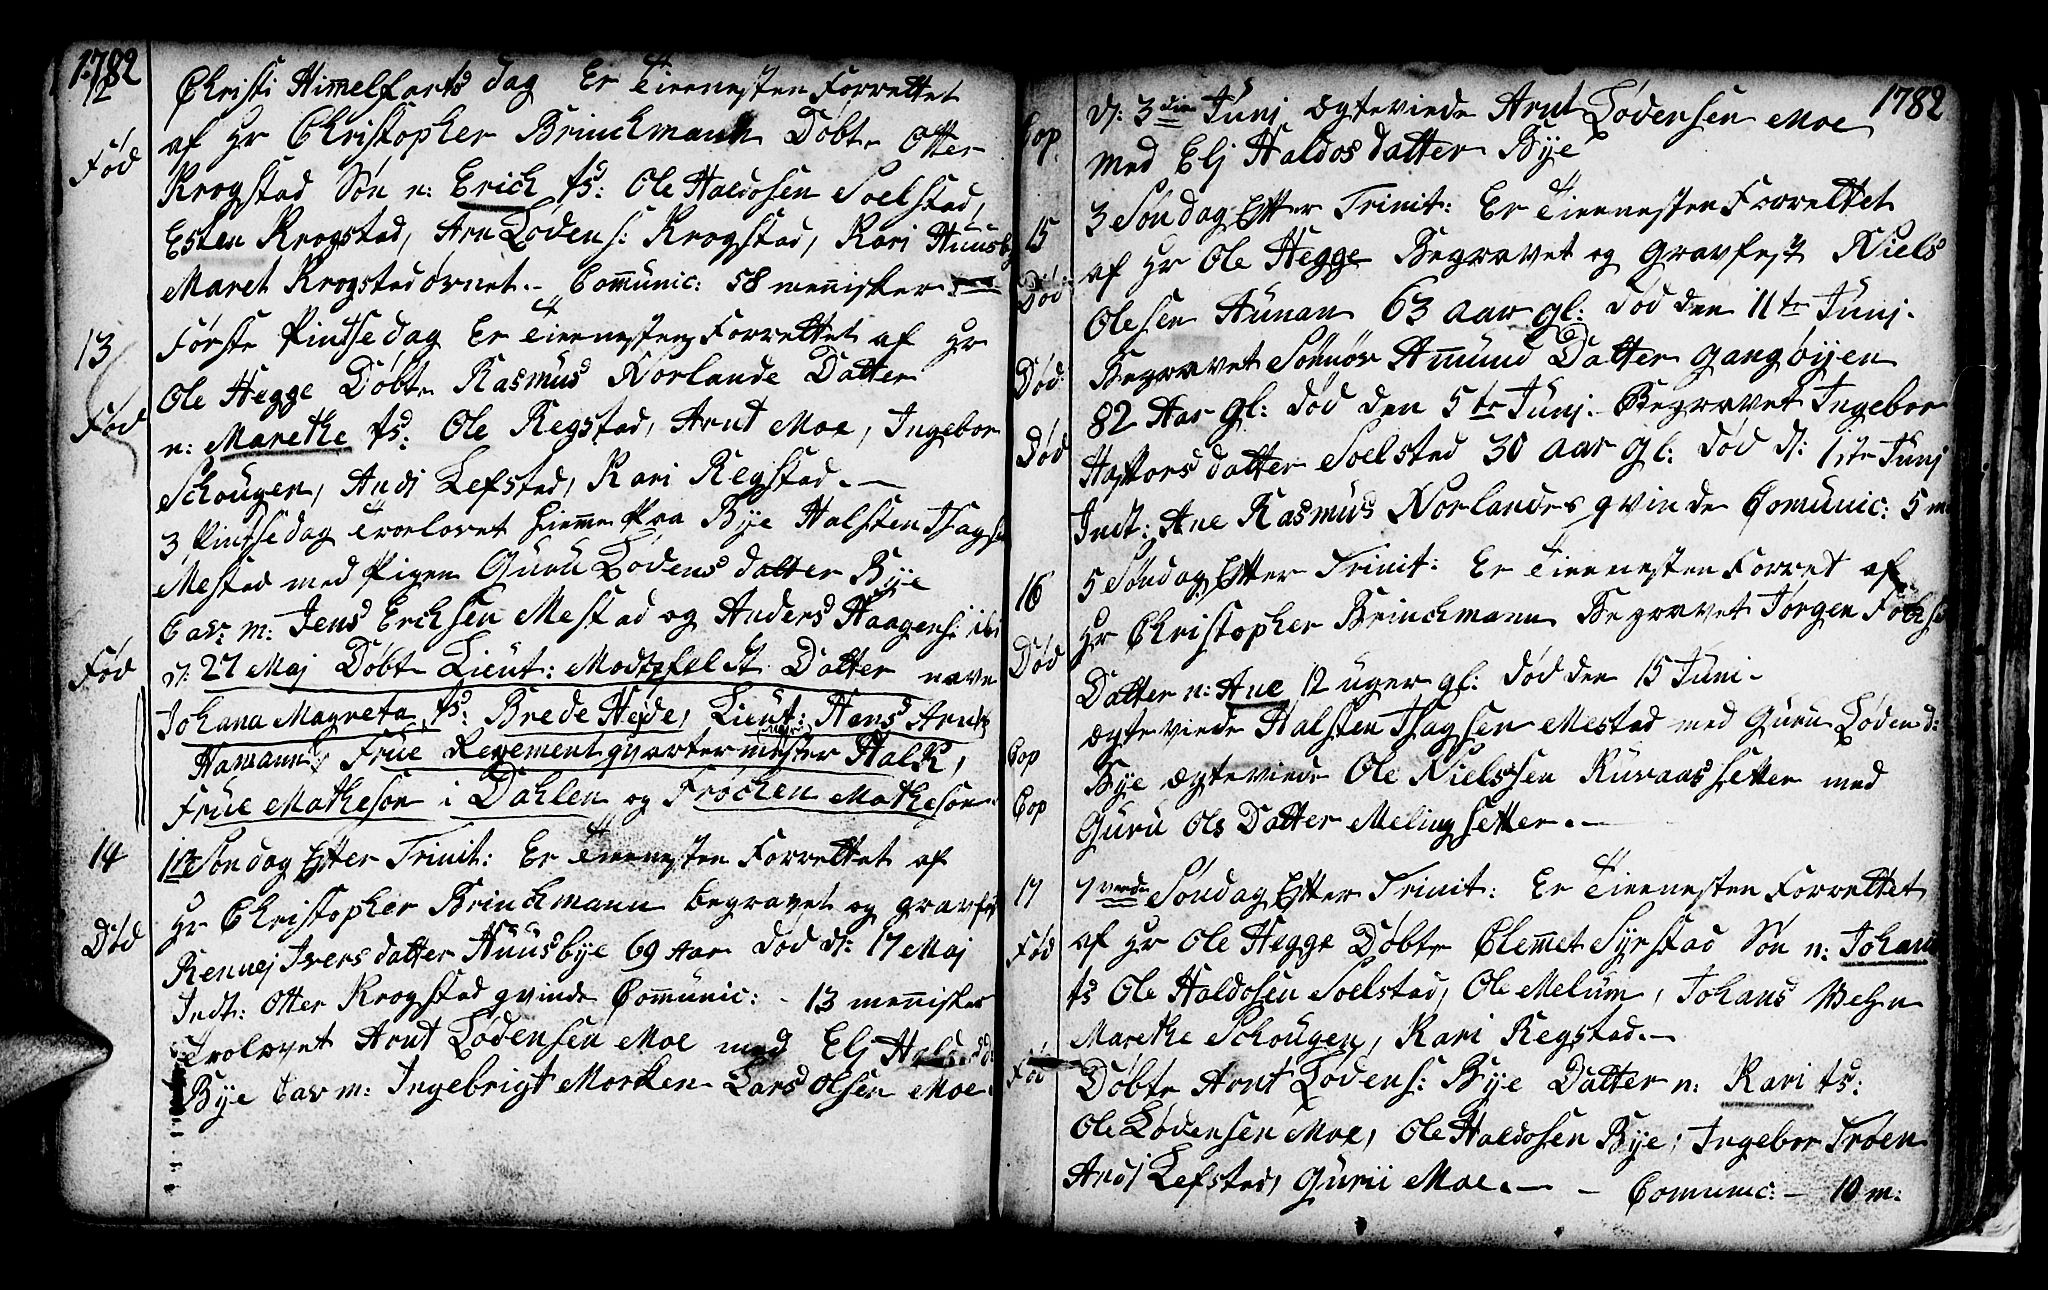 1782
12
Christi Himmelfarts dag Er Tieenesten Forrettet
af Hr Christopher Brinchmann Døbt Otter
Fød
Krogstad Søn n: Erich fs: Ole Haldosen Soelstad,
Esten Krogstad, Arn Lødens: Krogstad, Kari Huusby
Maret Krogstadøvnet. Comunic: 58 menisker
13
Første Pintsedag Er Tieenesten Forrettet af Hr
Ole Hegge Døbt Rasmus Norlande Datter
Fød
n: Marethe fs: Ole Regstad, Arnt Moe, Ingebor
Schougen, Andi Lefstad, Kari Regstad.
3 Pintsedag Troelovet hiemme fra Bye Halsten Thagsen
Mestad med Pigen Guru Lødens datter Bye
Cav: m: Jens Erichsen Mestad og Anders Haagens: ibi
Fød
d: 27 Maj Døbt Lieut: Modtzfeldt Datter navn
Johana Magreta, fs: Brede Hejde, Lieut: Hans Arntz
Hamann, Frue Regement qvartermester Halk,
Frue Matheson i Dahlen og Frøchen Matheson
14
1ste Søndag Efter Trinit: Er Tieenesten Forrettet af
Hr Christopher Brinchmann begravet og gravfest
Død
Rennej Iversdatter Huusbye 69 Aar død d: 17 Maj
Indt: Otter Krogstad qvinde Comunic: - 13 menisker
Trolovet Arnt Lødensen Moe med Elj Hald
Bye Cav m: Ingebrigt Morken Lars Olsen Moe
1782
Cop
d: 3die Junj ægteviede Arnt Lødensen Moe
med Elj Haldosdatter Bye
15
3 Søndag Efter Trinit: Er Tieenesten Forrettet
Død
af Hr Ole Hegge Begravet og gravfest Niels
Olesen Aunan 63 aar gl: død den 11te Junj.
Død
Begravet Amund Datter Gangøyen
82 Aar gl: død den 5te Junj. Begravet Ingebor
Død
Haftorsdatter Soelstad 30 aar gl: død d: 1ste Junj
Indt: Ane Rasmus Norlandes qvinde Comunic: 5 m
16
5 Søndag Efter Trinit: Er Tieenesten Forret af
Hr Christopher Brinchmann Begravet Jørgen
Død
Datter n: Ane 12 uger gl: død den 15 Juni.
Cop
ægteviede Halsten Thagsen Mestad med Guru Løden d:
Cop
Bye ægteviede Ole Nielssen Ruvaassetter med
Guru Ols Datter Melingsetter.
17
7vende Søndag Efter Trinit: Er Tieenesten Forrettet
Fød
af Hr Ole Hegge Døbt Clemmet Syrstad Søn n: Johan
fs Ole Haldosen Soelstad, Ole Melum, Johans Wehn
Marethe Schougen, Kari Regstad.
Fød
Døbte Arnt Lødens: Bye Datter n: Kari fs:
Ole Lødensen Moe, Ole Haldosen Bye, Ingebor Trøen
Andi Lefstad, Gurii Moe. - - Comunic: - 10 m: